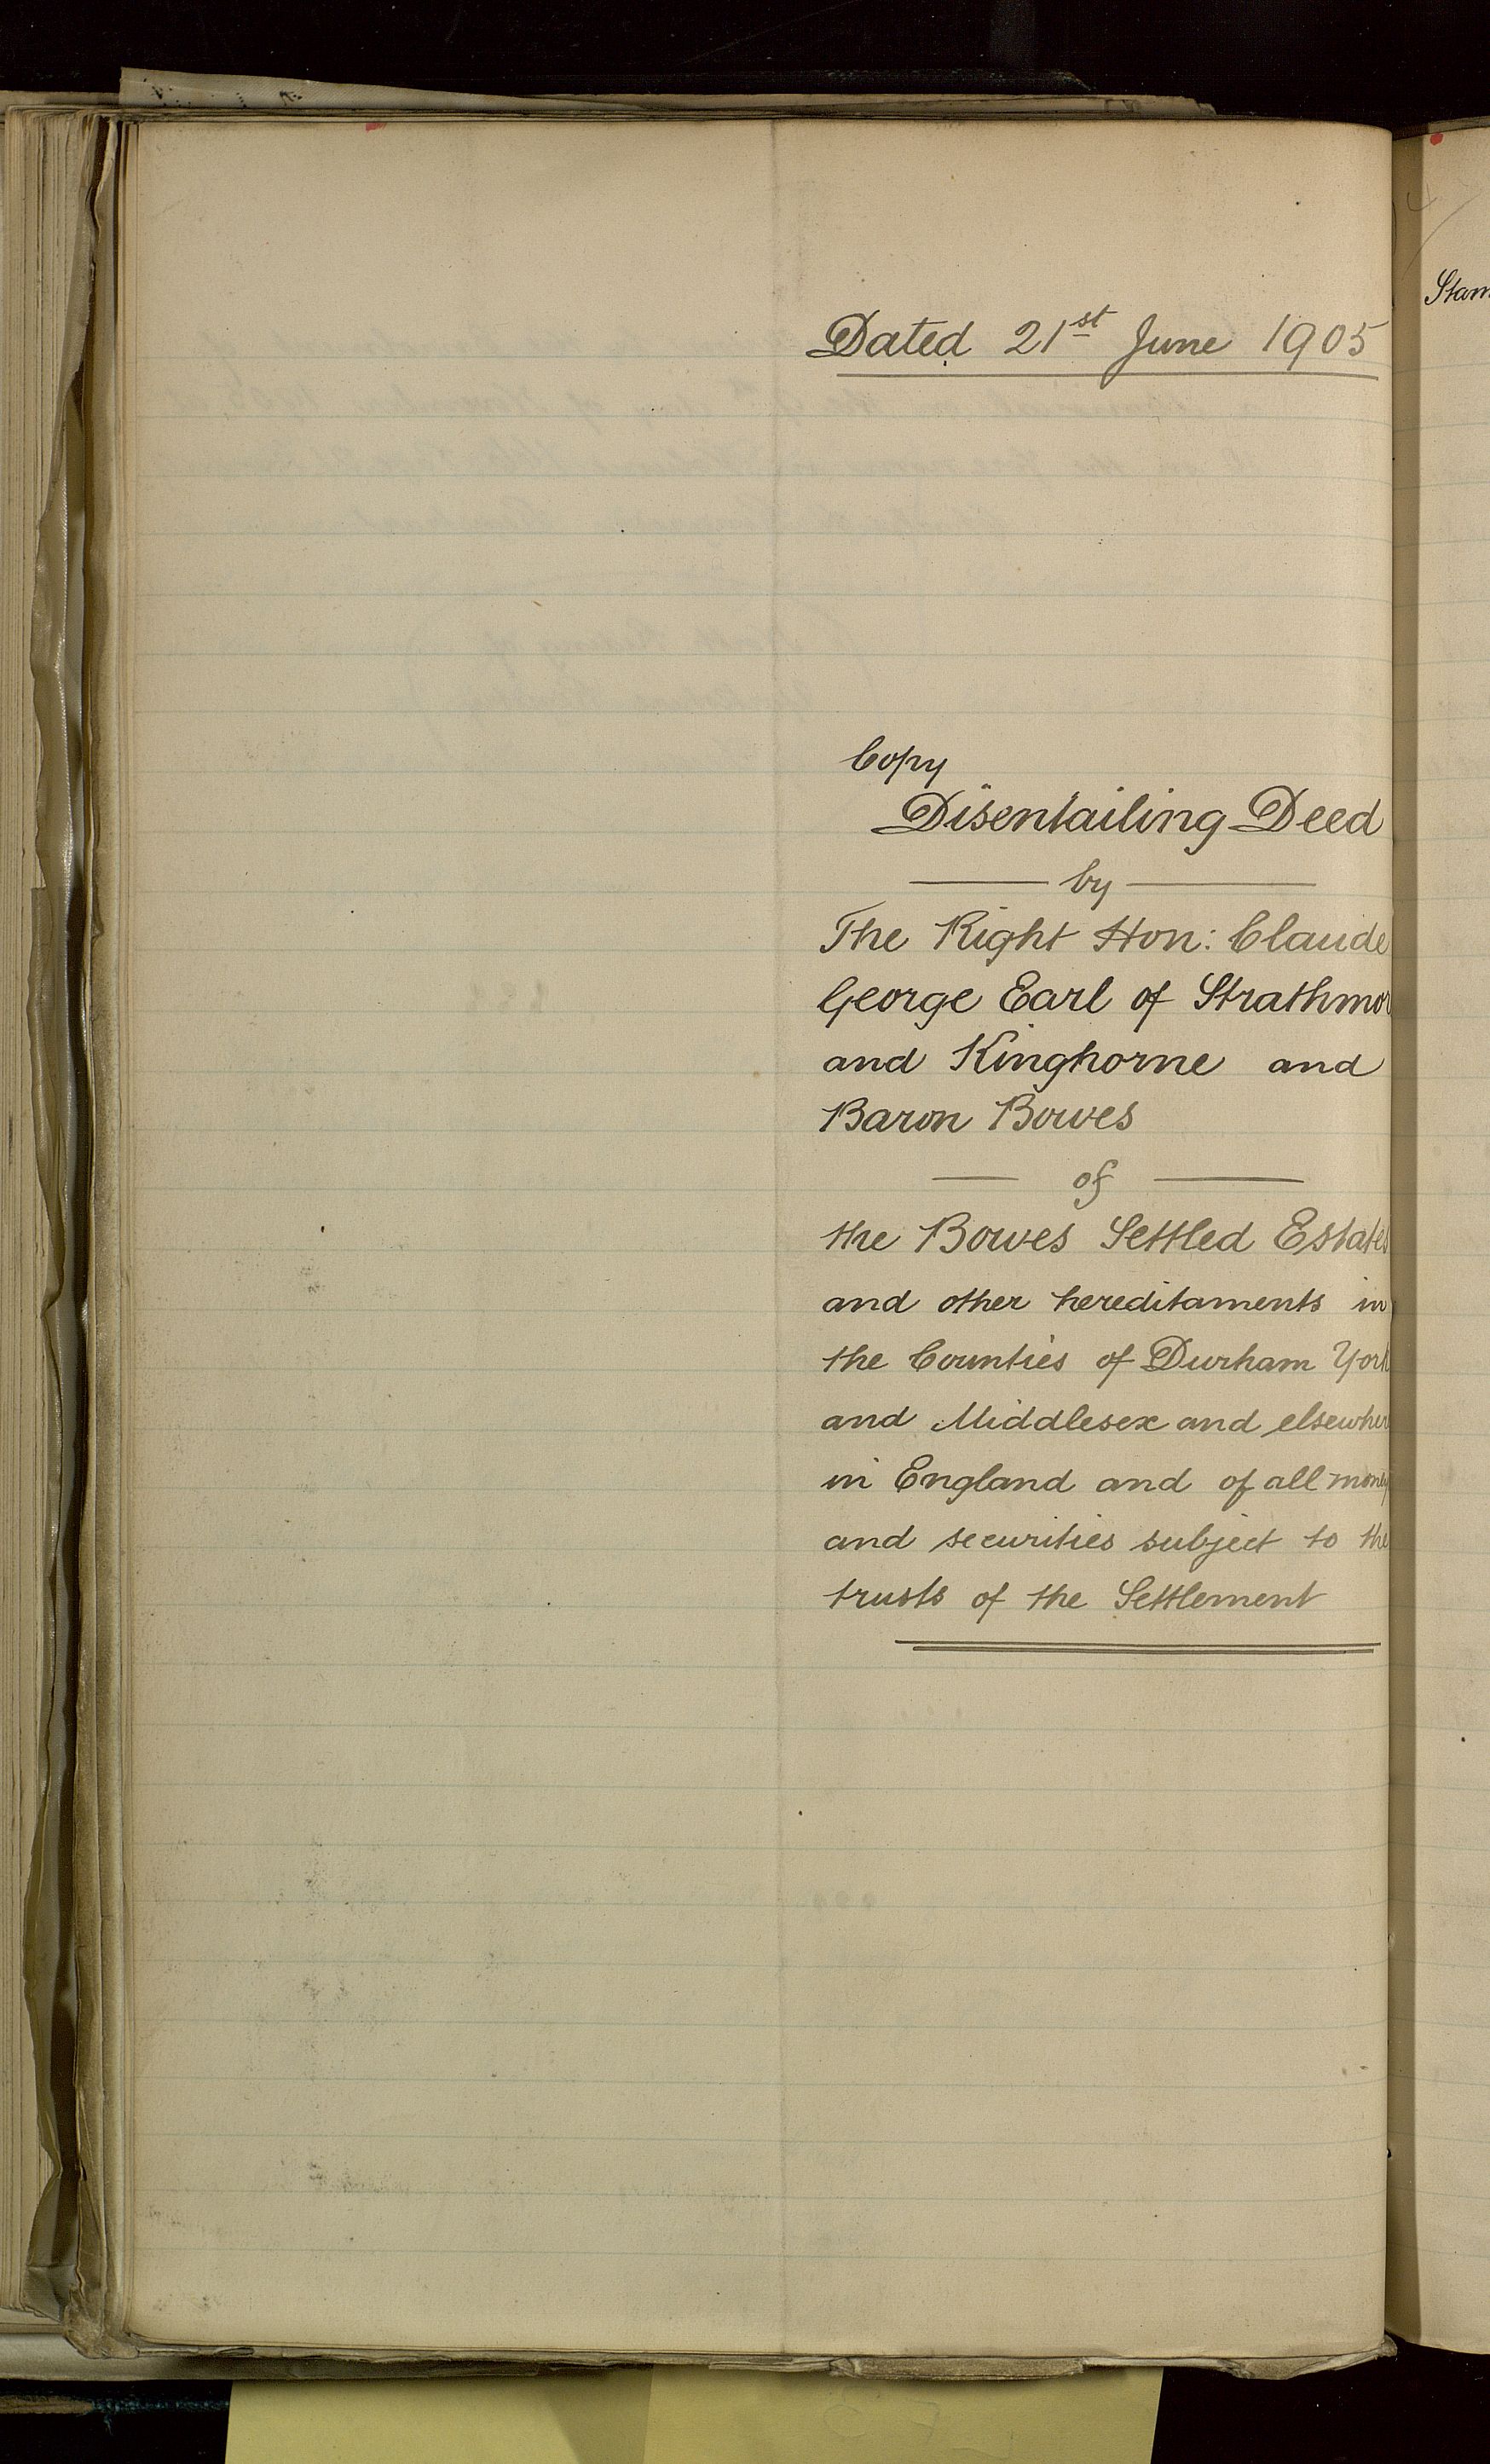 Dated 21st June 1905
Copy
Disentailing Deed
by
The Right Hon: Claude
George Earl of Strathmor
and Kinghorne and
Baron Bowes
of
the Bowes Settled Estates
and other hereditaments in
the Counties of Durham York
and Middlesex and elsewher
in England and of all money
and securities subject to the
trusts of the Settlement
Stam